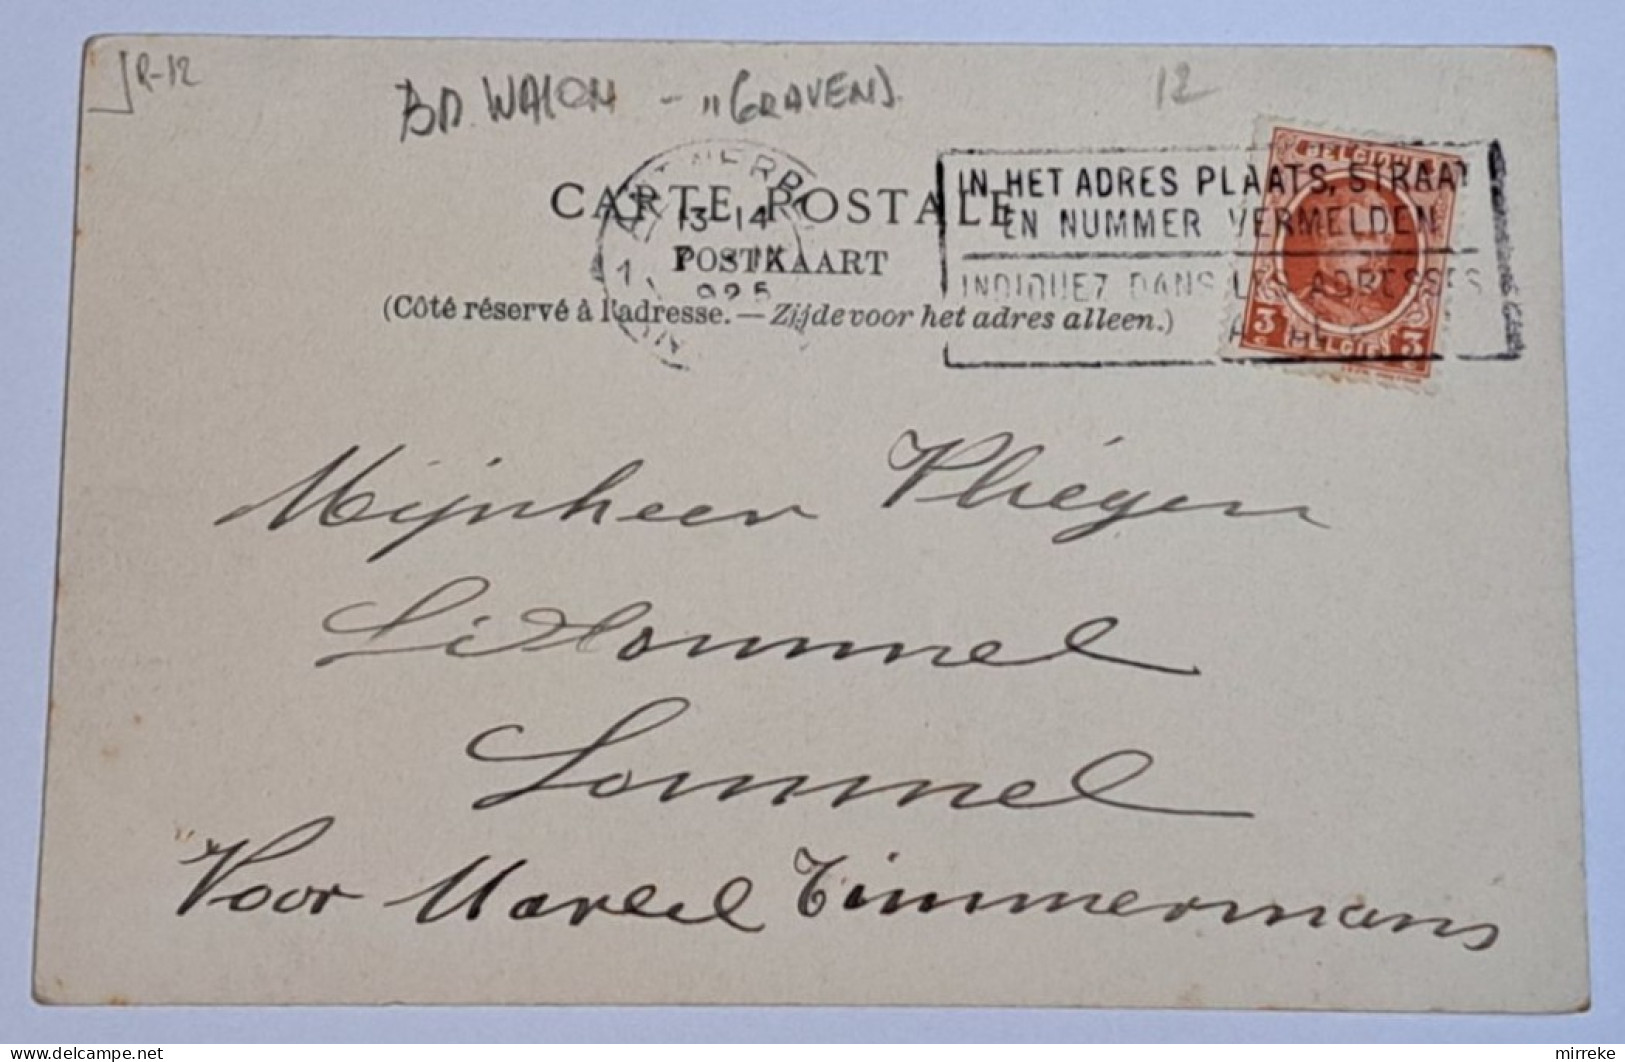 R-12
12
BD. WALON - "GRAVEN).
CARTE POSTALE
POSTKAART
(Côté réservé à l'adresse. — Zijde voor het adres alleen.)
13-14
IN HET ADRES PLAATS, STRAAT
EN NUMMER VERMELDEN
INDIQUEZ DANS LES ADRESSES
BELGIQUE
3 3
BELGIË
Mijnheer
Lommel
Voor Marcel Timmermans
mirreke